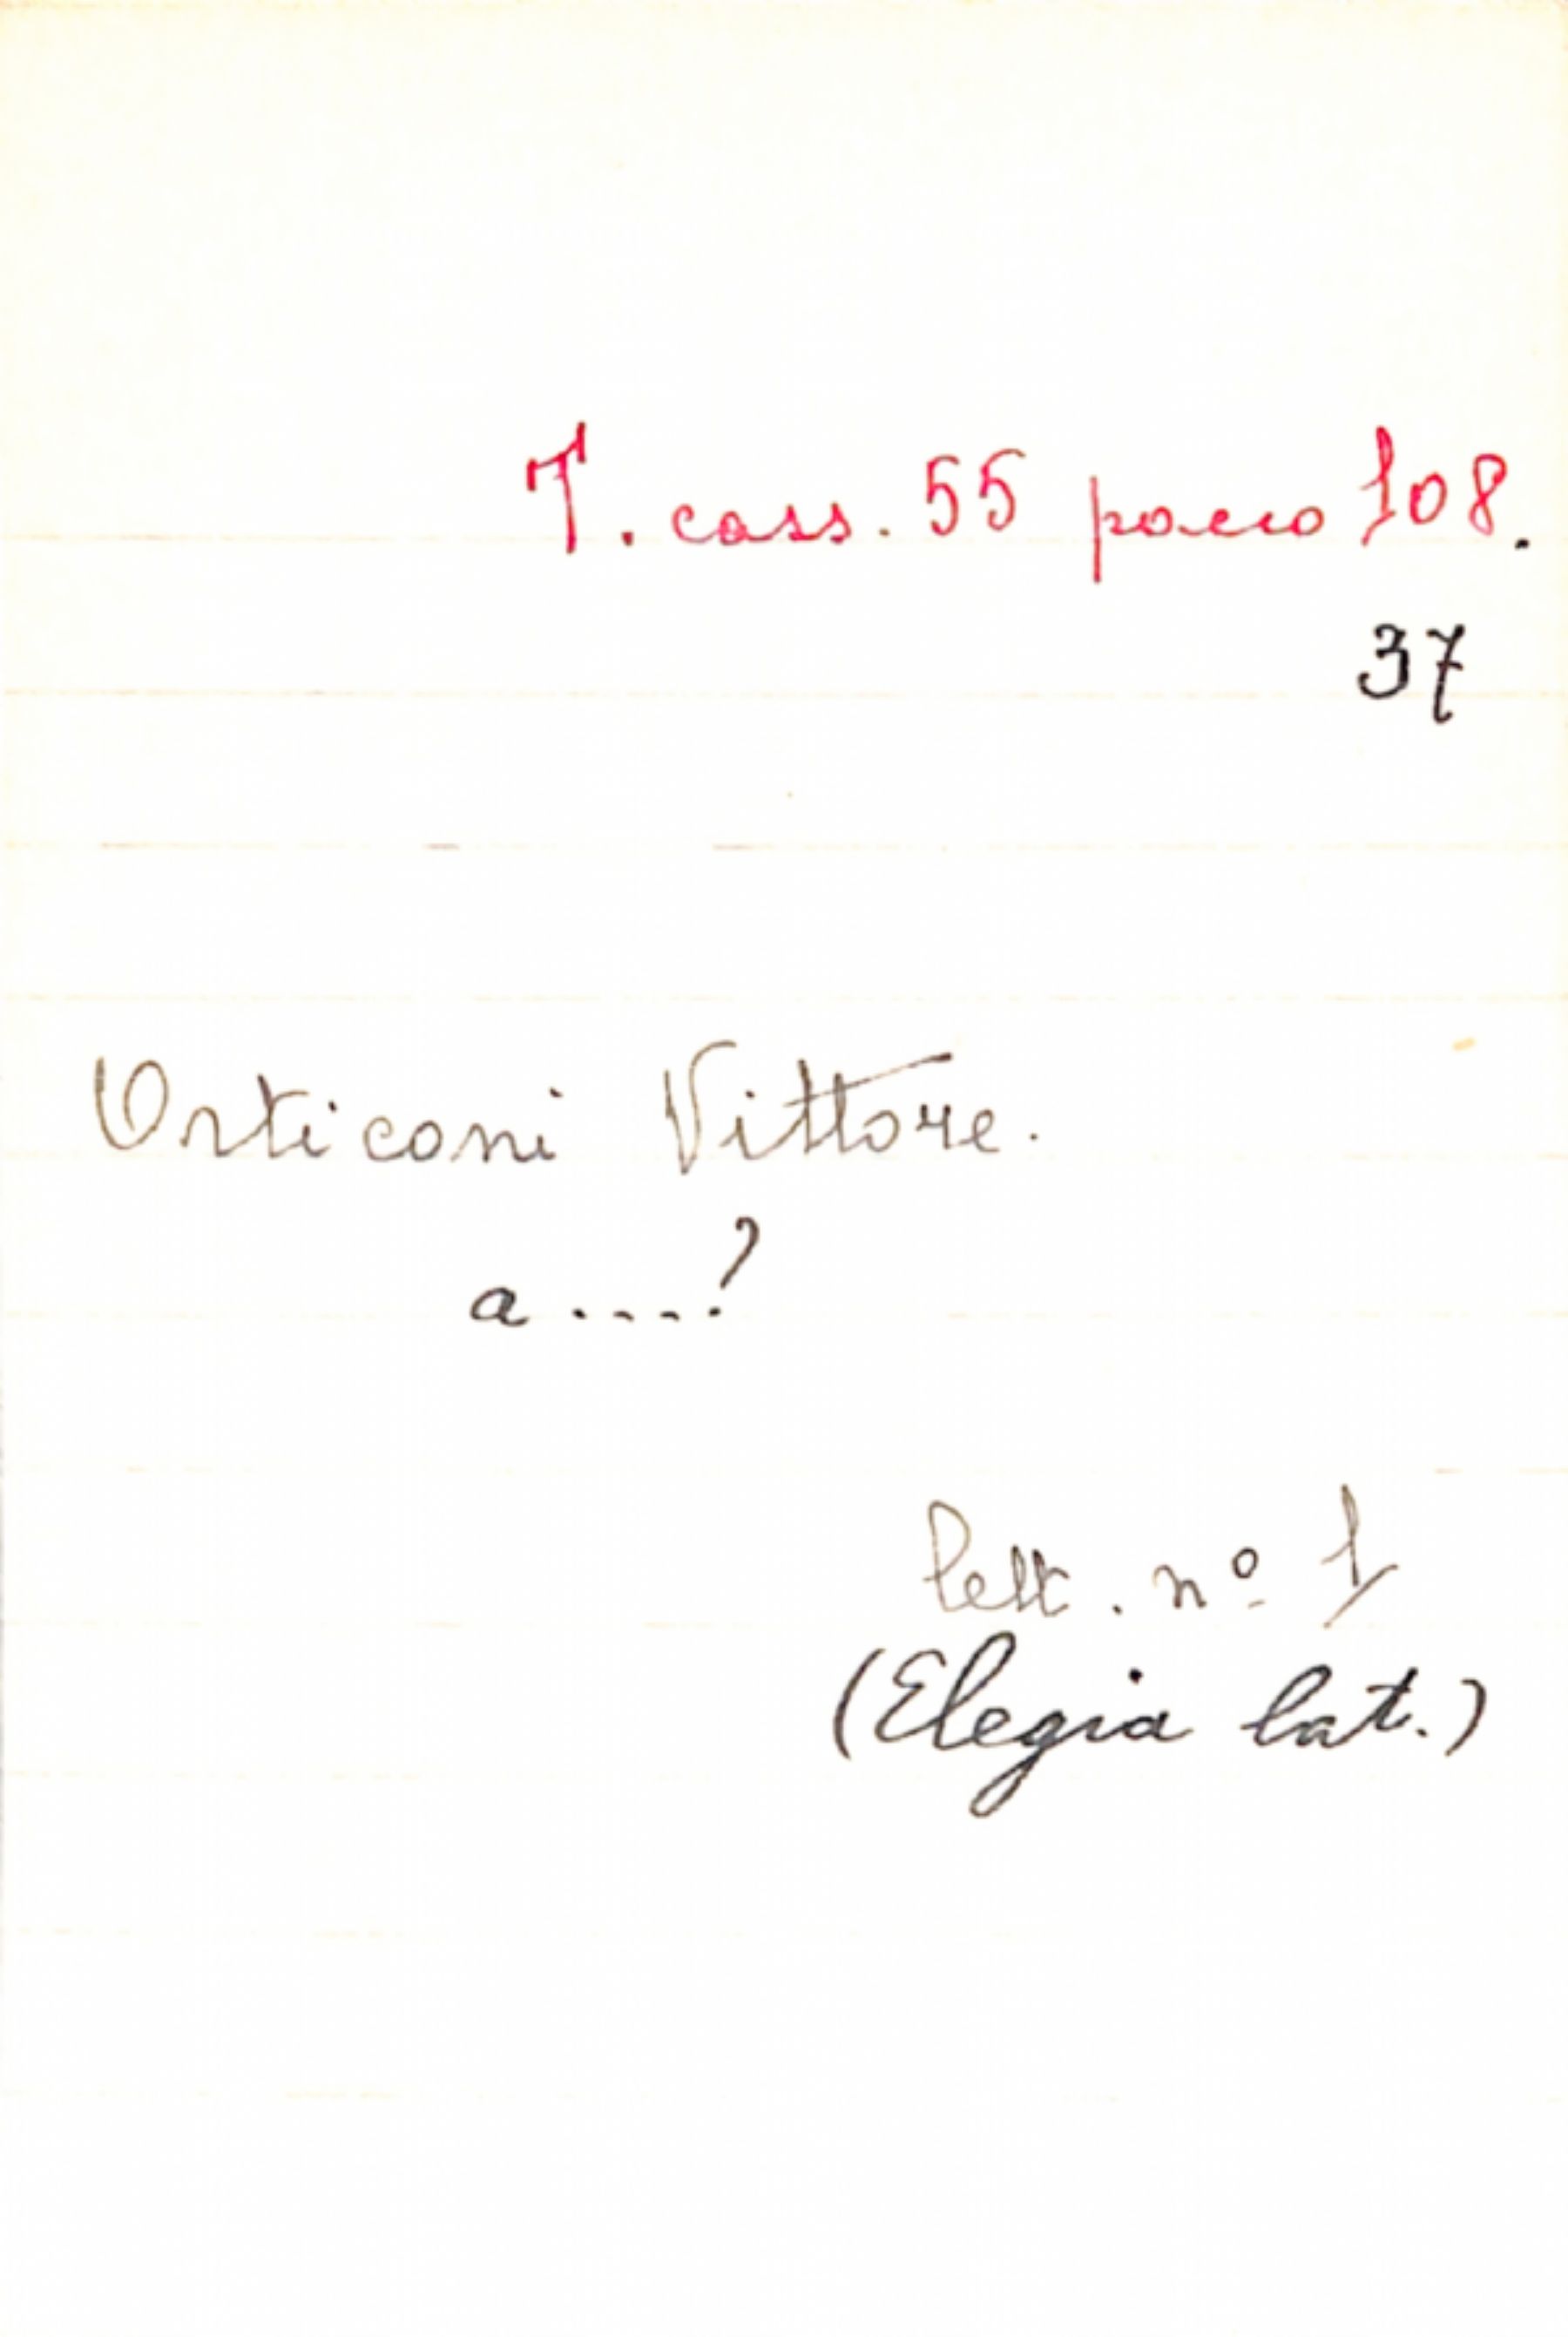 T. cass. 55 pacco 108.
37
Orticoni Vittore.
a....?
lett. nº 1
(Elegia lat.)